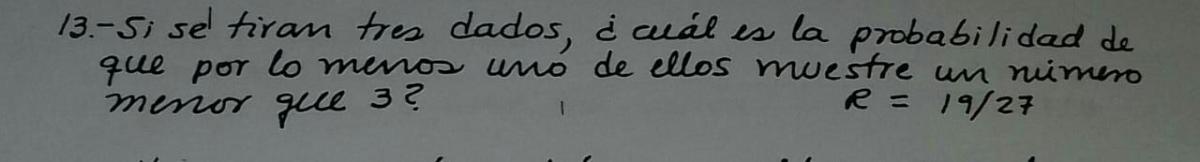 13.- Si se tiran tres dados, ¿cuál es la probabilidad de
que por lo menos uno de ellos muestre un número
menor que 3?
R = 19/27